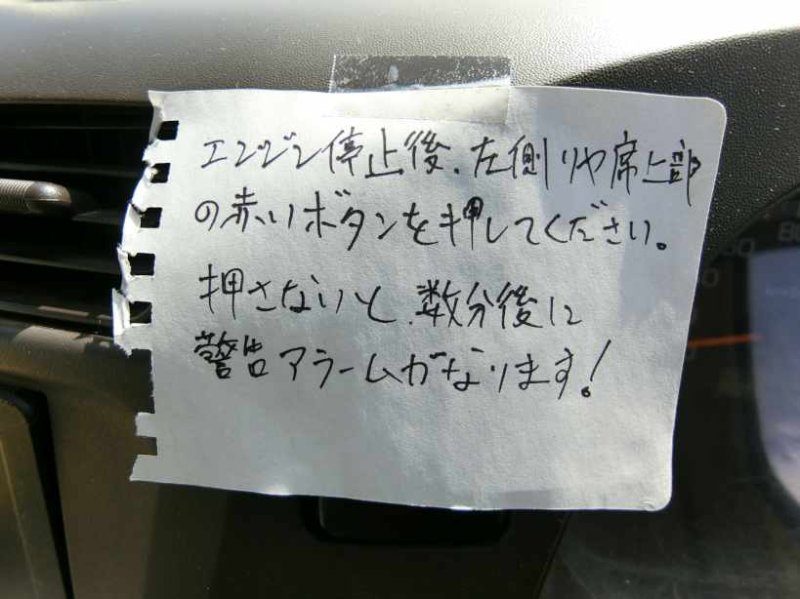 エンジン停止後、左側リヤ席上部
の赤いボタンを押してください。
押さないと、数分後に
警告アラームがなります！
80